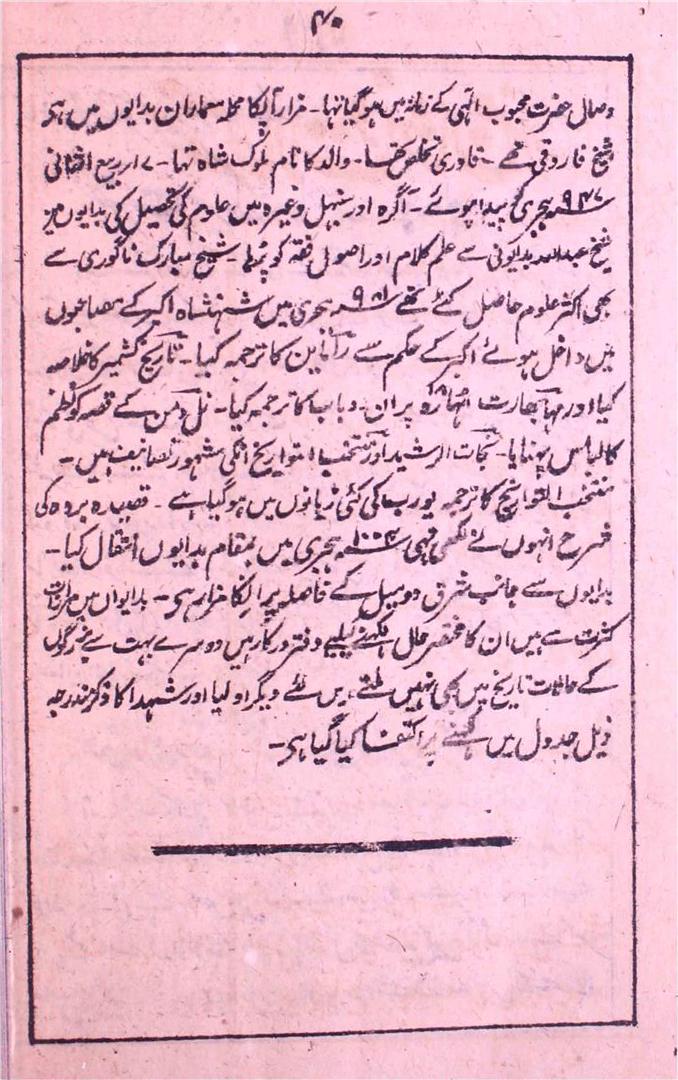 ۴۰
وصال حضرت محبوب الٰہی کے زمانہ میں ہوگیا تہا۔ مزار آپکا محلہ معماران بدایوں میں ہی
شیخ فاروقی تھے۔ قادری تخلص تھا۔ والد کا نام ملوک شاہ تہا۔ ۱۷ ربیع الثانی
۹۴۷ ہجری کو پیدا ہوئے۔ آگرہ اور سنبہل وغیرہ میں علوم کی تحصیل کی بدایوں میں
شیخ عبداللہ بدایونی سے علم کلام اور اصول فقہ کو پڑہا۔ شیخ مبارک ناگوری سے
بھی اکثر علوم حاصل کئے تھے ۹۸۱ ہجری میں شہنشاہ اکبر کے مصاحبوں
میں داخل ہوئے اکبر کے حکم سے رامائن کا ترجمہ کیا۔ تاریخ کشمیر کا خلاصہ
کیا اور مہابھارت پران۔ وباب کا ترجمہ کیا۔ نل دمن کے قصہ کو نظم
کا لباس پہنایا۔ نجات الرشید اور منتخب التواریخ انکی مشہور تصانیف ہیں۔
منتخب التواریخ کا ترجمہ یورپ کی کئی زبانوں میں ہوگیا ہے۔ قصیدہ بردہ کی
شرح انہوں نے لکھی تہی ۱۰۰۴ ہجری میں بمقام بدایوں انتقال کیا۔
بدایوں سے جانب شرق دو میل کے فاصلہ پر انکا مزار ہی۔ بدایوں میں مزارات
کثرت سے ہیں ان کا مختصر حال لکہنے کیلیے دفتر درکار ہیں دوسرے بہت سے بزرگوں
کے حالات تاریخ میں بھی نہیں ملتے، اس لئے دیگر اولیا اور شہدا کا ذکر مندرجہ
ذیل جدول میں لکہنے پر اکتفا کیا گیا ہی۔